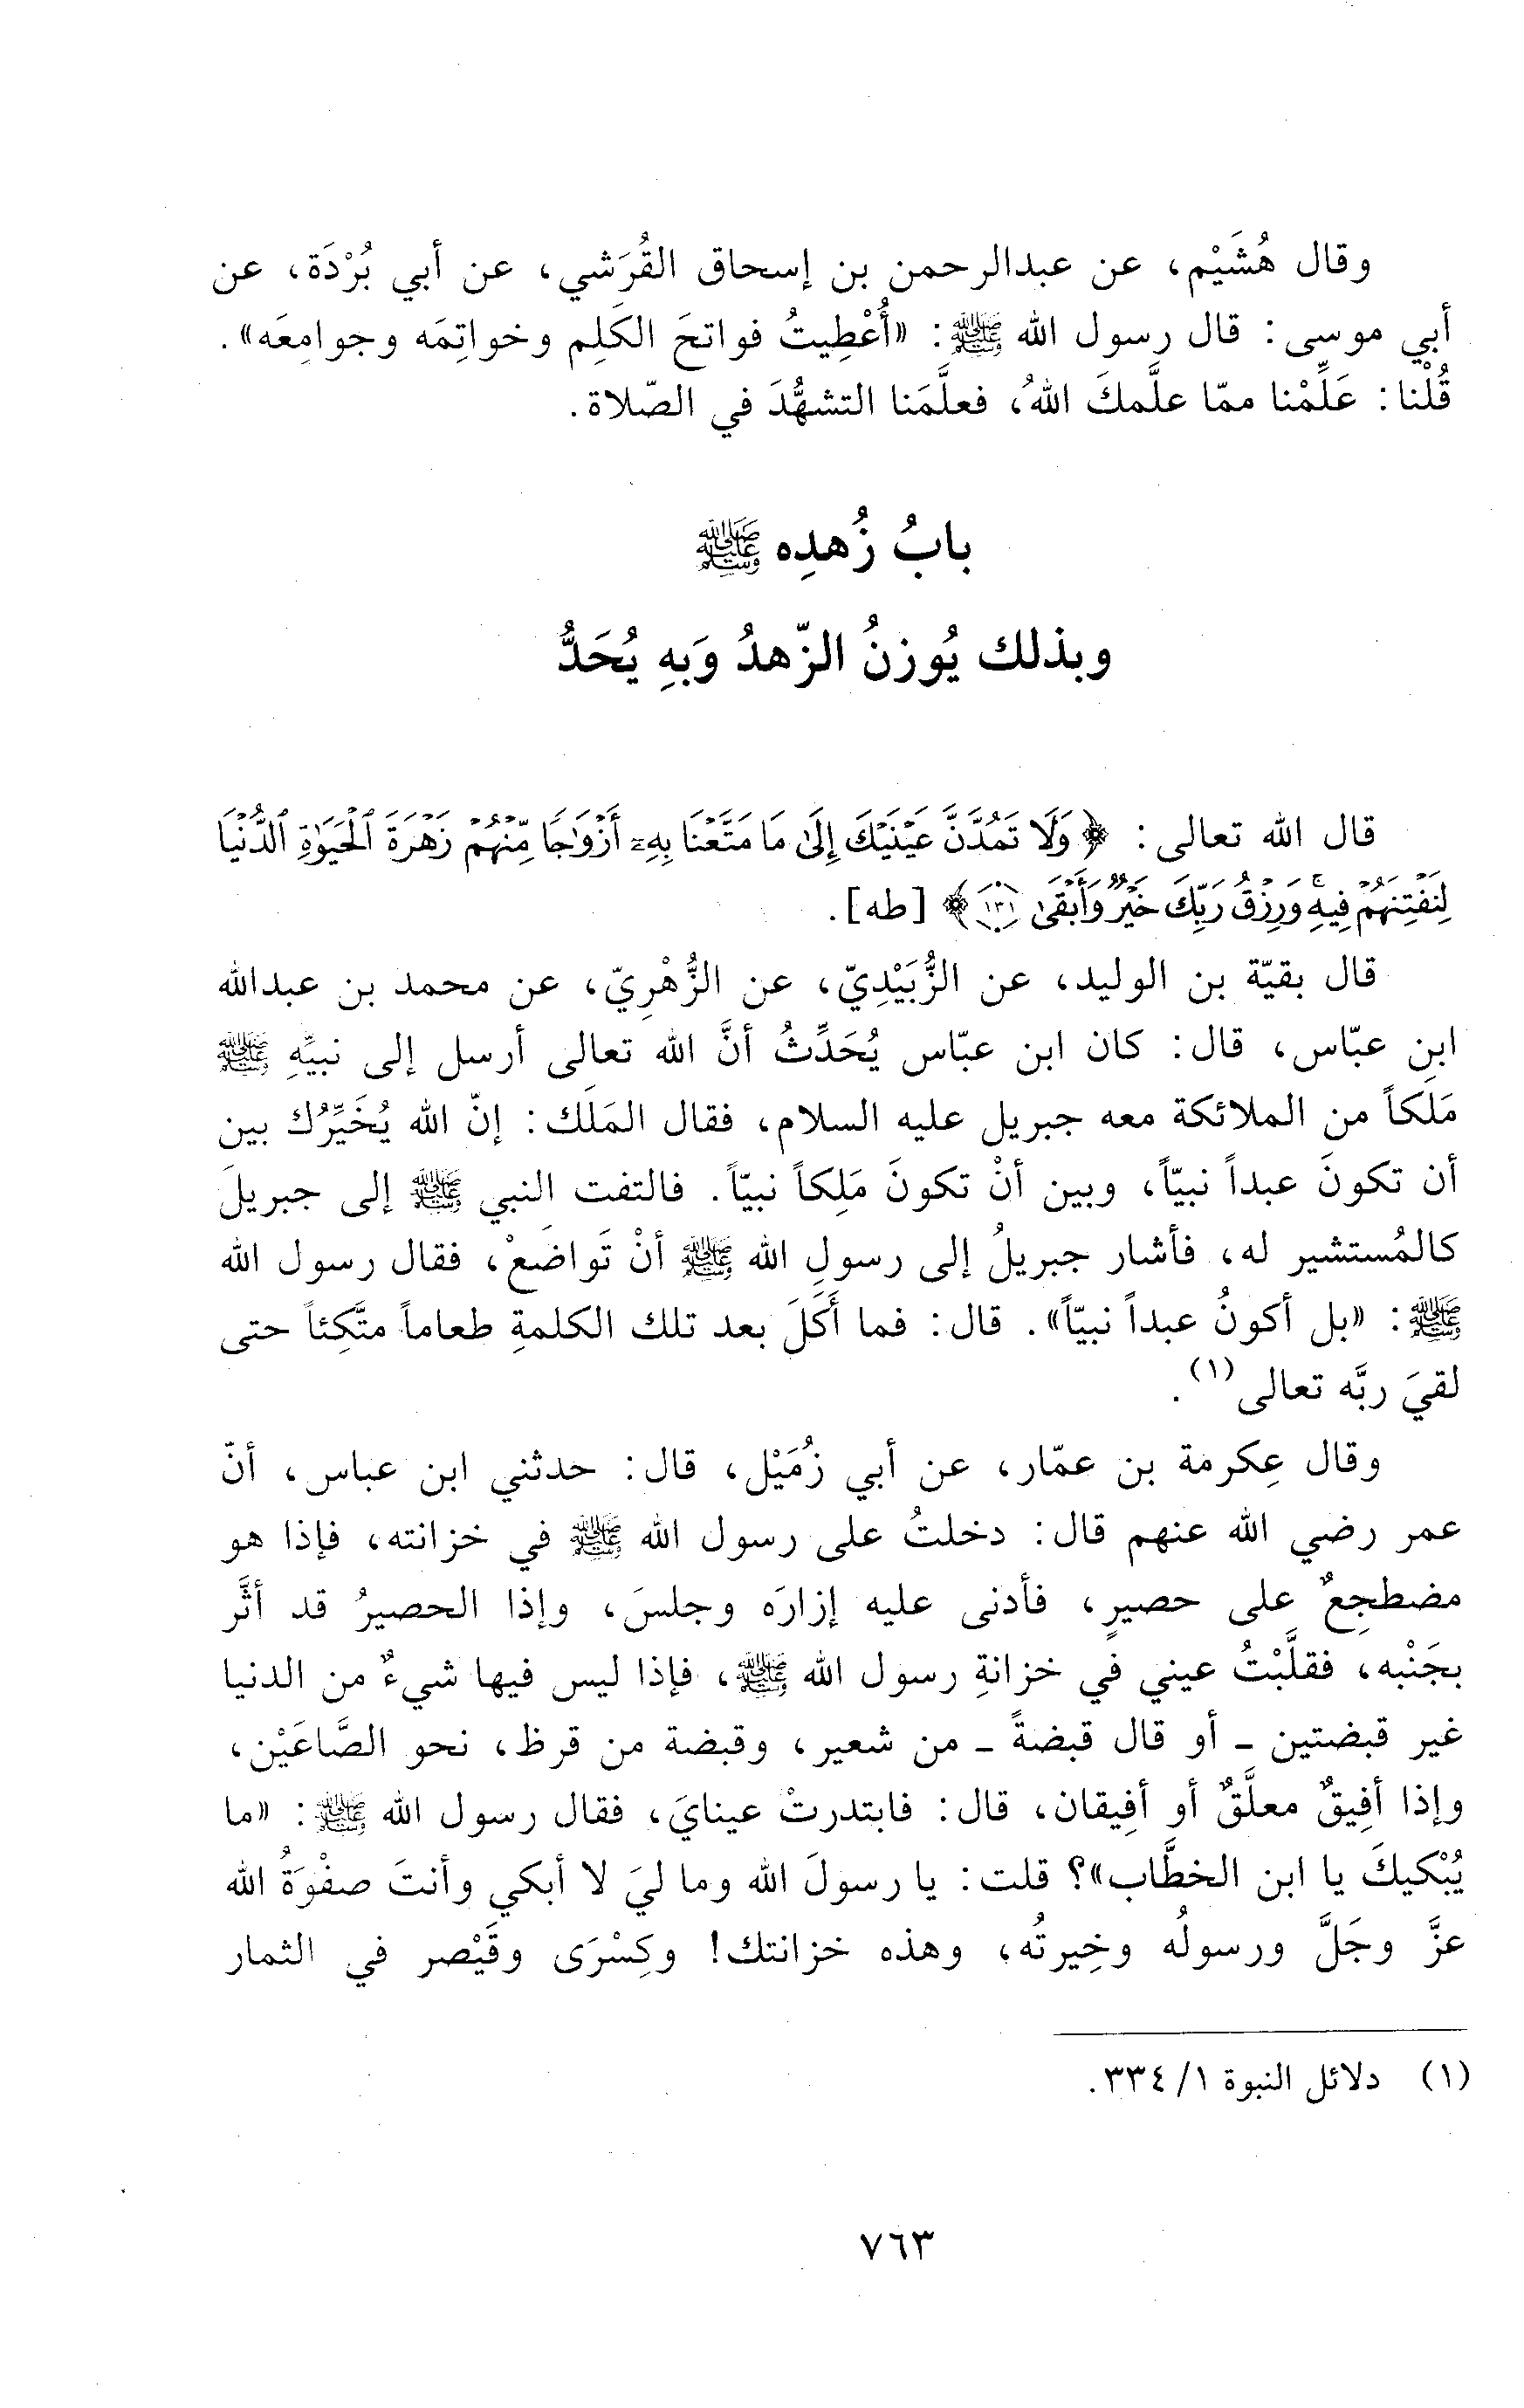 وقال هُشَيْم، عن عبدالرحمن بن إسحاق القُرَشي، عن أبي بُرْدَة، عن
أبي موسى: قال رسول الله ﷺ: «أُعْطِيتُ فواتحَ الكَلِم وخواتِمَه وجوامِعَه».
قُلْنا: عَلِّمْنا ممّا علَّمكَ اللهُ، فعلَّمَنا التشهُّدَ في الصّلاة.
بابُ زُهدِه ﷺ
وبذلك يُوزنُ الزّهدُ وَبِهِ يُحَدُّ
قال الله تعالى: ﴿وَلَا تَمُدَّنَّ عَيْنَيْكَ إِلَىٰ مَا مَتَّعْنَا بِهِۦٓ أَزْوَٰجًا مِّنْهُمْ زَهْرَةَ ٱلْحَيَوٰةِ ٱلدُّنْيَا
لِنَفْتِنَهُمْ فِيهِ ۚ وَرِزْقُ رَبِّكَ خَيْرٌ وَأَبْقَىٰ ١٣١﴾ [طه].
قال بقيّة بن الوليد، عن الزُّبَيْدِيّ، عن الزُّهْرِيّ، عن محمد بن عبدالله
ابنِ عبّاس، قال: كان ابن عبّاس يُحَدِّثُ أنَّ الله تعالى أرسل إلى نبيِّهِ ﷺ
مَلَكاً من الملائكة معه جبريل عليه السلام، فقال المَلَك: إنّ الله يُخَيِّرُك بين
أن تكونَ عبداً نبيّاً، وبين أنْ تكونَ مَلِكاً نبيّاً. فالتفت النبي ﷺ إلى جبريلَ
كالمُستشير له، فأشار جبريلُ إلى رسولِ الله ﷺ أنْ تَواضَعْ، فقال رسول الله
ﷺ: «بل أكونُ عبداً نبيّاً». قال: فما أَكَلَ بعد تلك الكلمةِ طعاماً متَّكِئاً حتى
لقيَ ربَّه تعالى(١).
وقال عِكرمة بن عمّار، عن أبي زُمَيْل، قال: حدثني ابن عباس، أنّ
عمر رضي الله عنهم قال: دخلتُ على رسول الله ﷺ في خزانته، فإذا هو
مضطجِعٌ على حصيرٍ، فأدنى عليه إزارَه وجلسَ، وإذا الحصيرُ قد أثَّر
بجَنْبه، فقلَّبْتُ عيني في خزانةِ رسول الله ﷺ، فإذا ليس فيها شيءٌ من الدنيا
غير قبضتين - أو قال قبضةً - من شعير، وقبضة من قرظ، نحو الصَّاعَيْن،
وإذا أفِيقٌ معلَّقٌ أو أفِيقان، قال: فابتدرتْ عينايَ، فقال رسول الله ﷺ: «ما
يُبْكيكَ يا ابن الخطَّاب»؟ قلت: يا رسولَ الله وما ليَ لا أبكي وأنتَ صفْوَةُ الله
عزَّ وجَلَّ ورسولُه وخِيرتُه، وهذه خزانتك! وكِسْرَى وقَيْصر في الثمار
(١) دلائل النبوة ١/ ٣٣٤.
٧٦٣